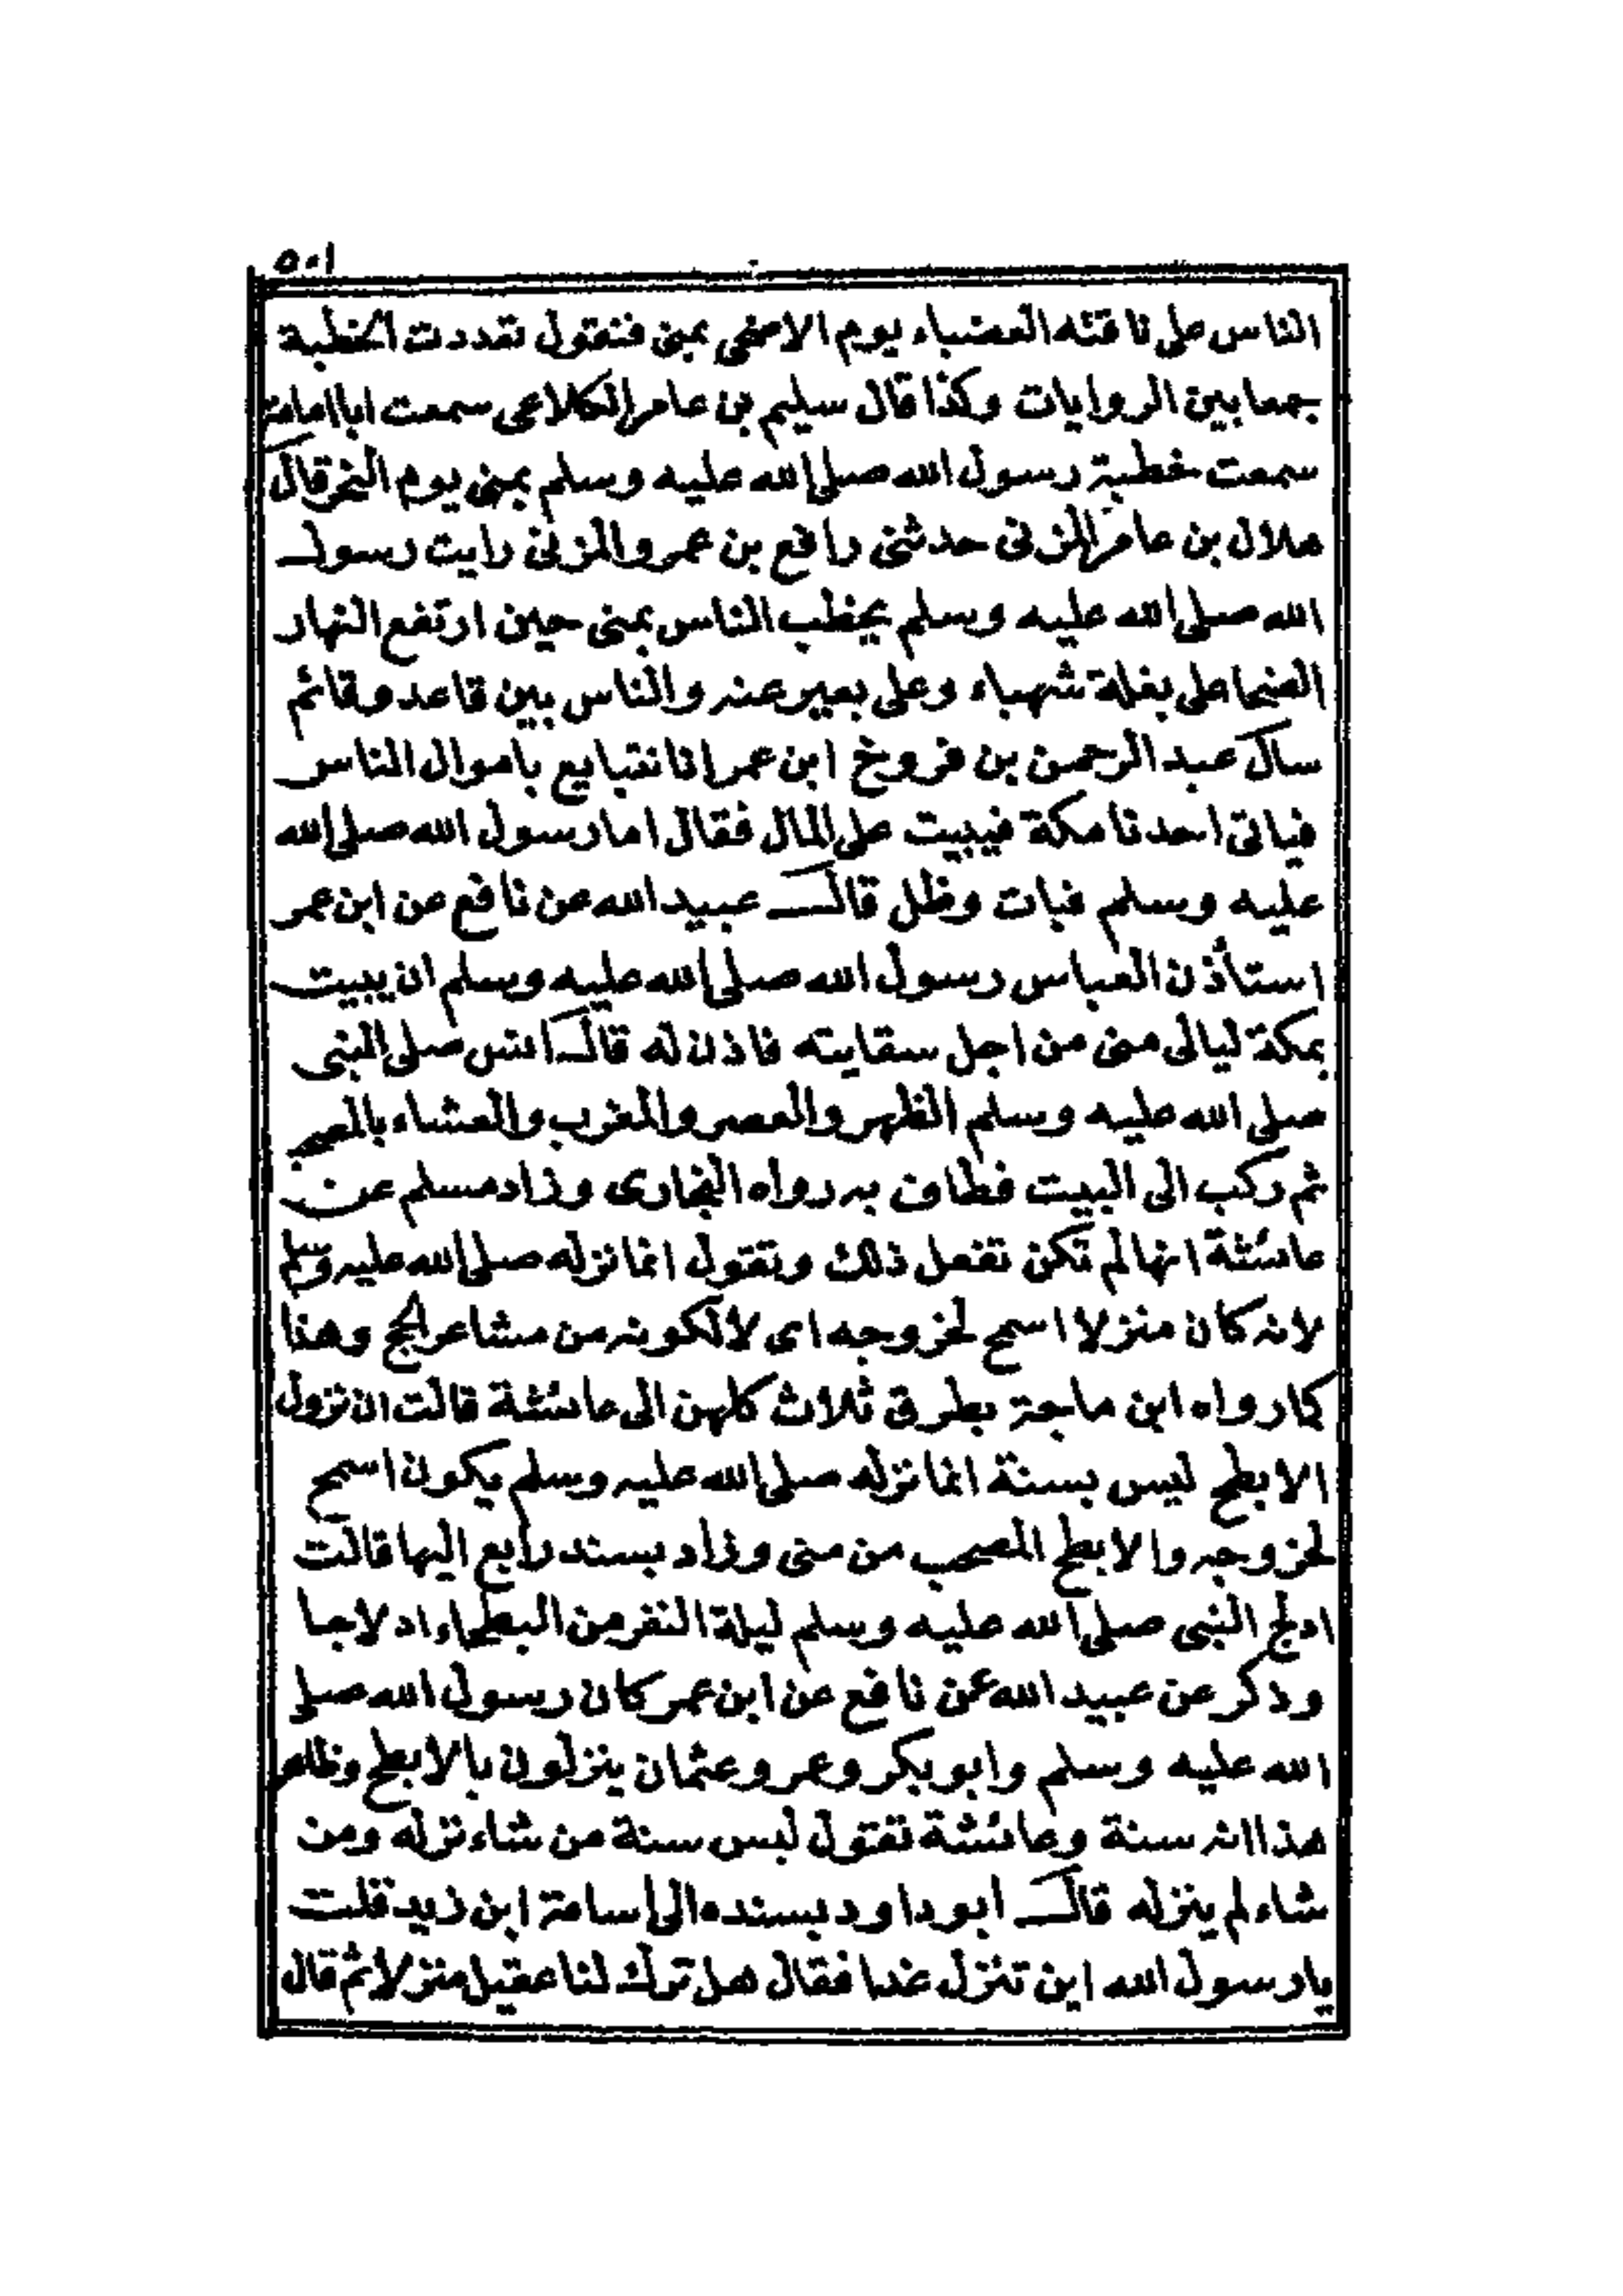 ٥٠١
الناس على ناقته العضباء يوم الاضحى بمنى فنقول تعددت الخطبة
جمعا بين الروايات وكذا قال سليم بن عامر الكلاعى سمعت ابا امامة
سمعت خطبة رسول الله صلى الله عليه وسلم بمنى يوم النحر قال
هلال بن عامر المزنى حدثنى رافع بن عمرو المزنى رايت رسول
الله صلى الله عليه وسلم يخطب الناس بمنى حين ارتفع النهار
الضحا على بغلة شهباء وعلى يعبر عنه والناس بين قاعد وقائم
سال عبد الرحمن بن فروخ ابن عمر انا نتبايع باموال الناس
فياتى احدنا مكة فيبيت على المال فقال اما رسول الله صلى الله
عليه وسلم فبات وظل قال عبيد الله عن نافع عن ابن عمر
استأذن العباس رسول الله صلى الله عليه وسلم ان يبيت
بمكة ليالى منى من اجل سقايته فاذن له قال انس صلى النبى
صلى الله عليه وسلم الظهر والعصر والمغرب والعشاء بالمحصب
ثم ركب الى البيت فطاف به رواه البخارى وزاد مسلم عن
عائشة انها لم تكن تفعل ذلك وتقول انما نزله صلى الله عليه وسلم
لانه كان منزلا اسمح لخروجه اى لا لكونه من مشاعر الحج وهذا
كما رواه ابن ماجة بطرق ثلاث كلهن الى عائشة قالت ان نزول
الابطح ليس بسنة انما نزله صلى الله عليه وسلم يكون اسمح
لخروجه والابطح المصحب من منى وزاد بسند رابع اليها قالت
ادلج النبى صلى الله عليه وسلم ليلة النفر من البطحاء ادلاجا
وذكر عن عبيد الله عن نافع عن ابن عمر كان رسول الله صلى
الله عليه وسلم وابو بكر وعمر وعثمان ينزلون بالابطح وظاهر
هذا انه سنة وعائشة تقول ليس سنة من شاء نزله ومن
شاء لم ينزله قال ابو داود بسنده الى اسامة ابن زيد قلت
يا رسول الله اين تنزل غدا فقال هل ترك لنا عقيل منزلا ثم قال